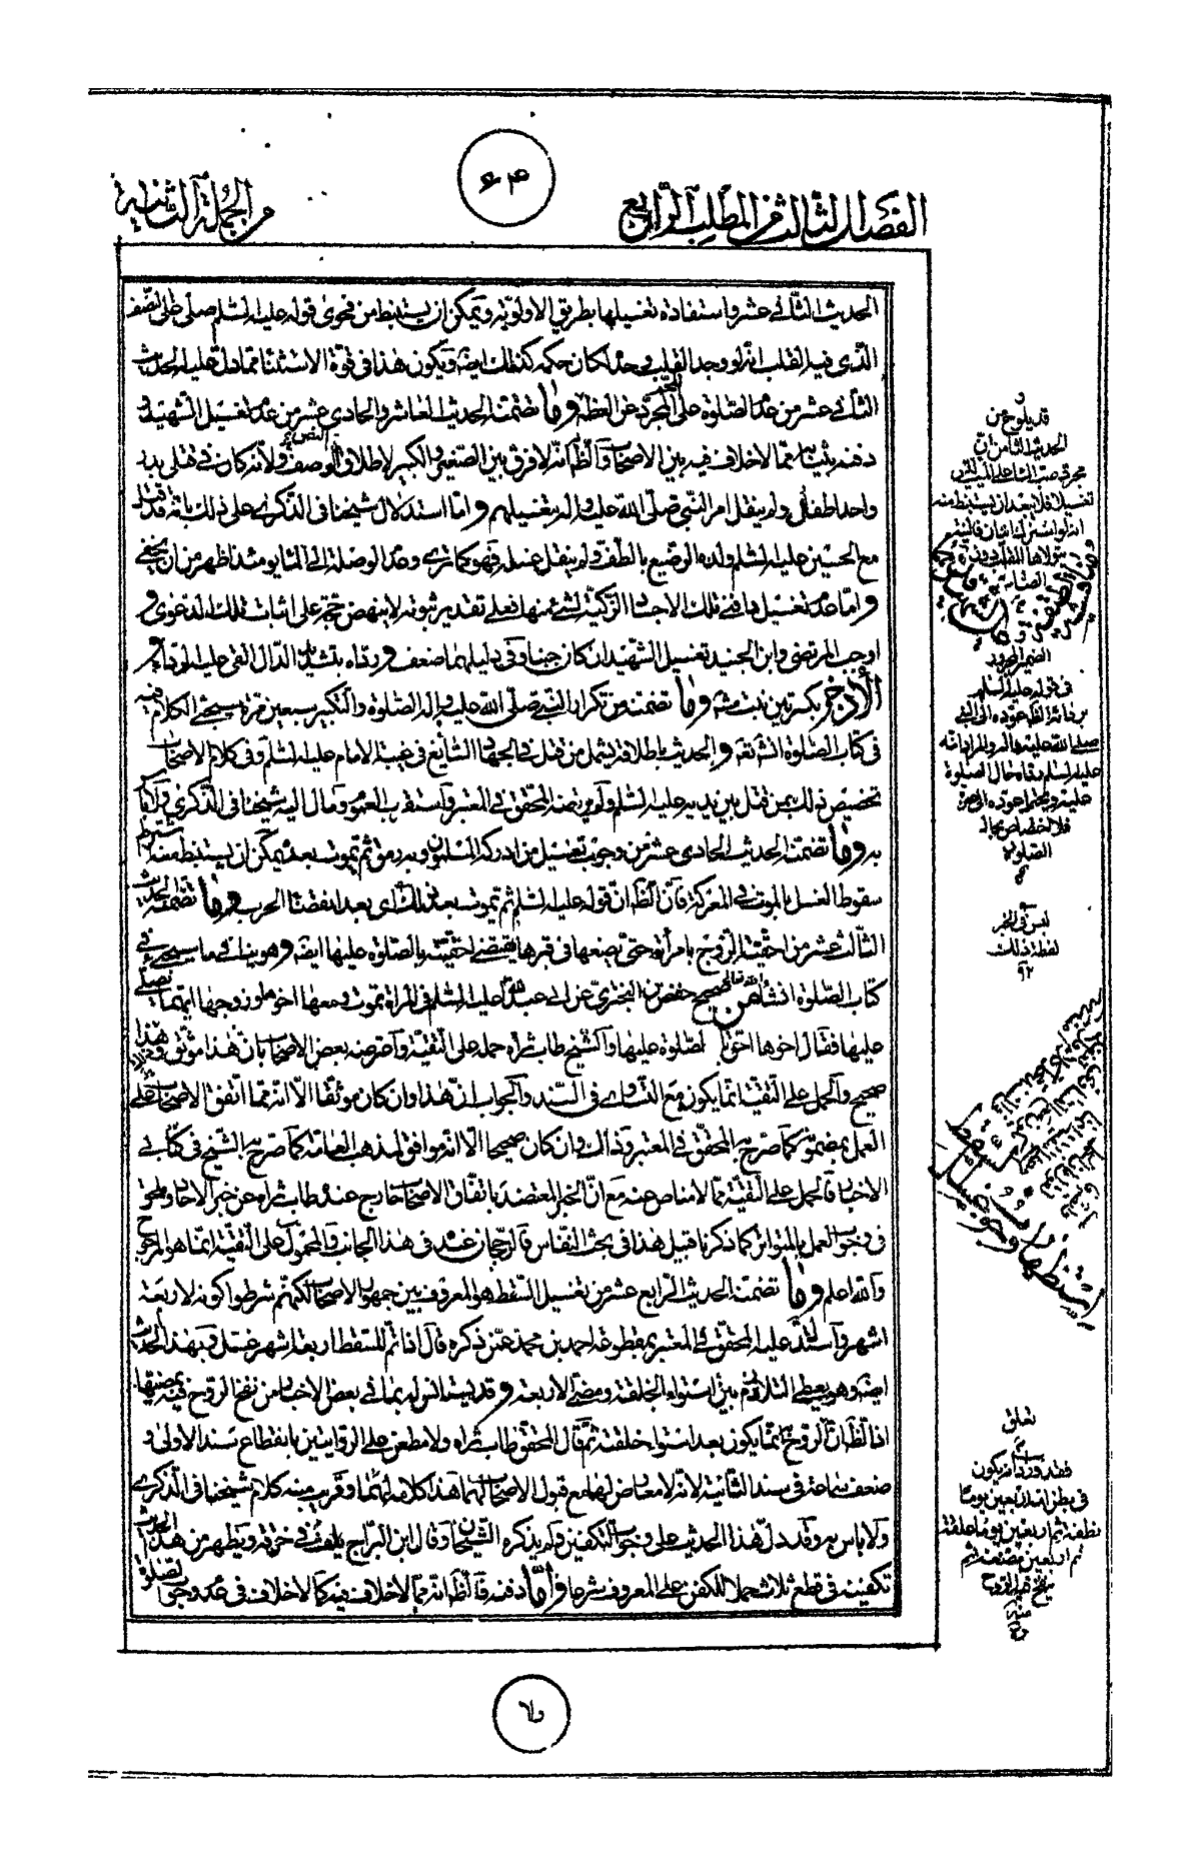 ٦٤
الفصل الثالث من المطلب الرابع
من الجملة الثانية
الحديث الثاني عشر واستفادة تغسيلها بطريق الاولوية ويمكن ان يستنبط من فحوى قوله عليه السلم صلى على النصف
الذي فيه القلب انه لو وجد القلب وحده كان حكمه كذلك ايضه ويكون هذا في قوة الاستثنا مما دل عليه الحديث
الثاني عشر من عدم الصلوة على اللحم المجرد عن العظم وما تضمنه الحديث العاشر والحادي عشر من عدم تغسيل الشهيد و
دفنه بثيابه مما لا خلاف فيه بين الاصحاب والظ انه لا فرق بين الصغير والكبير لاطلاق النص ولانه كان في قتلى بدر
واحد اطفال ولم ينقل امر النبي صلى الله عليه واله بتغسيلهم واما استدلال شيخنا في الذكرى على ذلك بانه قد قتل
مع الحسين عليه السلم ولده الرضيع بالطف ولم ينقل غسله فهو كما ترى وعدم الوصلة الى الماء يومئذ اظهر من ان يخفى
واما عدم تغسيل باقي تلك الاجساد الزكية لشئ منها فعلى تقدير ثبوته لا ينهض حجة على اثبات تلك الدعوى و
اوجب المرتضى وابن الجنيد تغسيل الشهيد ان كان جنبا وفي دليلهما ضعف ورثاه بتشديد الدال القى عليه الرداء و
الأذخر بكسرتين نبت مشه وما تضمنه من تكرار النبي صلى الله عليه واله الصلوة والتكبير سبعين مرة سيجئ الكلام فيه
في كتاب الصلوة انشاءالله تعالى والحديث باطلاقه يشمل من قتل في الجهاد الشايع في غيبة الامام عليه السلم وفي كلام الاصحاب
تخصيص ذلك بمن قتل بين يديه عليه السلم ولم يرتضه المحقق في المعتبر واستقرب العموم ومال اليه شيخنا في الذكرى ولا باس
به وما تضمنه الحديث الحادي عشر من وجوب تغسيل من ادركه المسلمون وبه رمق ثم يموت بعد يمكن ان يستنبط منه اشتراط
سقوط الغسل بالموت في المعركة فان الظ ان قوله عليه السلم ثم يموت بعد ذلك اي بعد انقضاء الحرب وما تضمنه الحديث
الثالث عشر من احقية الزوج بامرأته حتى يضعها في قبرها يقتضي احقيته بالصلوة عليها ايضه وهو ينافي ما سيجئ في
كتاب الصلوة انشاءالله تعالى من صحيح حفص بن البختري عن ابي عبد الله عليه السلم في المراة تموت ومعها اخوها وزوجها ايهما يصلى
عليها فقال اخوها احق بالصلوة عليها والشيخ طاب ثراه حمله على التقية واعترضه بعض الاصحاب بان هذا موثق وهذا
صحيح والحمل على التقية انما يكون مع التساوي في السند والجواب ان هذا وان كان موثقا الا انه مما اتفق الاصحاب على
العمل بمضمونه كما صرح به المحقق في المعتبر وذاك وان كان صحيحا الا انه موافق لمذهب العامة كما صرح به الشيخ في كتابي
الاخبار فالحمل على التقية مما لا مناص عنه مع ان الخبر المعتضد باتفاق الاصحاب خارج عنده طاب ثراه عن خبر الاحاد وملحق
في وجوب العمل بالمتواتر كما ذكرنا قبيل هذا في بحث النفاس فالرجحان عنده في هذا الجانب والمحمول على التقية انما هو المرجوح
والله اعلم وما تضمنه الحديث الرابع عشر من تغسيل السقط هو المعروف بين جمهور الاصحاب لكنهم شرطوا كونه لاربعة
اشهر واستدل عليه المحقق في المعتبر بمقطوعة احمد بن محمد عمن ذكره قال اذا تم للسقط اربعة اشهر غسل وبهذا الحديث
ايضه وهو يعطي التلازم بين استواء الخلقة ومضي الاربعة وقد يستانس له بما في بعض الاخبار من نفخ الروح فيه بمضيها
اذ الظ ان الروح انما يكون بعد استواء خلقته ثم قال المحقق طاب ثراه ولا مطعن على الروايتين بانقطاع سند الاولى و
ضعف سماعة في سند الثانية لانه لا معارض لهما مع قبول الاصحاب لهما هذا كلامه وقريب منه كلام شيخنا في الذكرى
ولا باس به وقد دل هذا الحديث على وجوب التكفين ولم يذكره الشيخان وقال ابن البراج يلف في خرقة ويظهر من هذا الحديث
تكفينه في قطع ثلاث حملا للكفن على المعروف شرعا واما دفنه فالظ انه مما لا خلاف فيه كما لا خلاف في عدم وجوب الصلوة
قد يلوح من
الحديث الثامن ان
مجرد صب الماء على الميت يسمى
تغسيلا فلا يبعد ان يستنبط منه
الضمير المجرور
في قوله عليه السلم
صلى الله عليه واله والمراد انه
عليه السلم رداه حال الصلوة
فلا اختصاص بحال
الصلوة
ليس في الخبر
لفظة ذلك
تعلق
فقد ورد انه يكون
في بطن امه اربعين يوما
نطفة ثم اربعين يوما علقة
ثم اربعين مضغة ثم
ينفخ فيه الروح